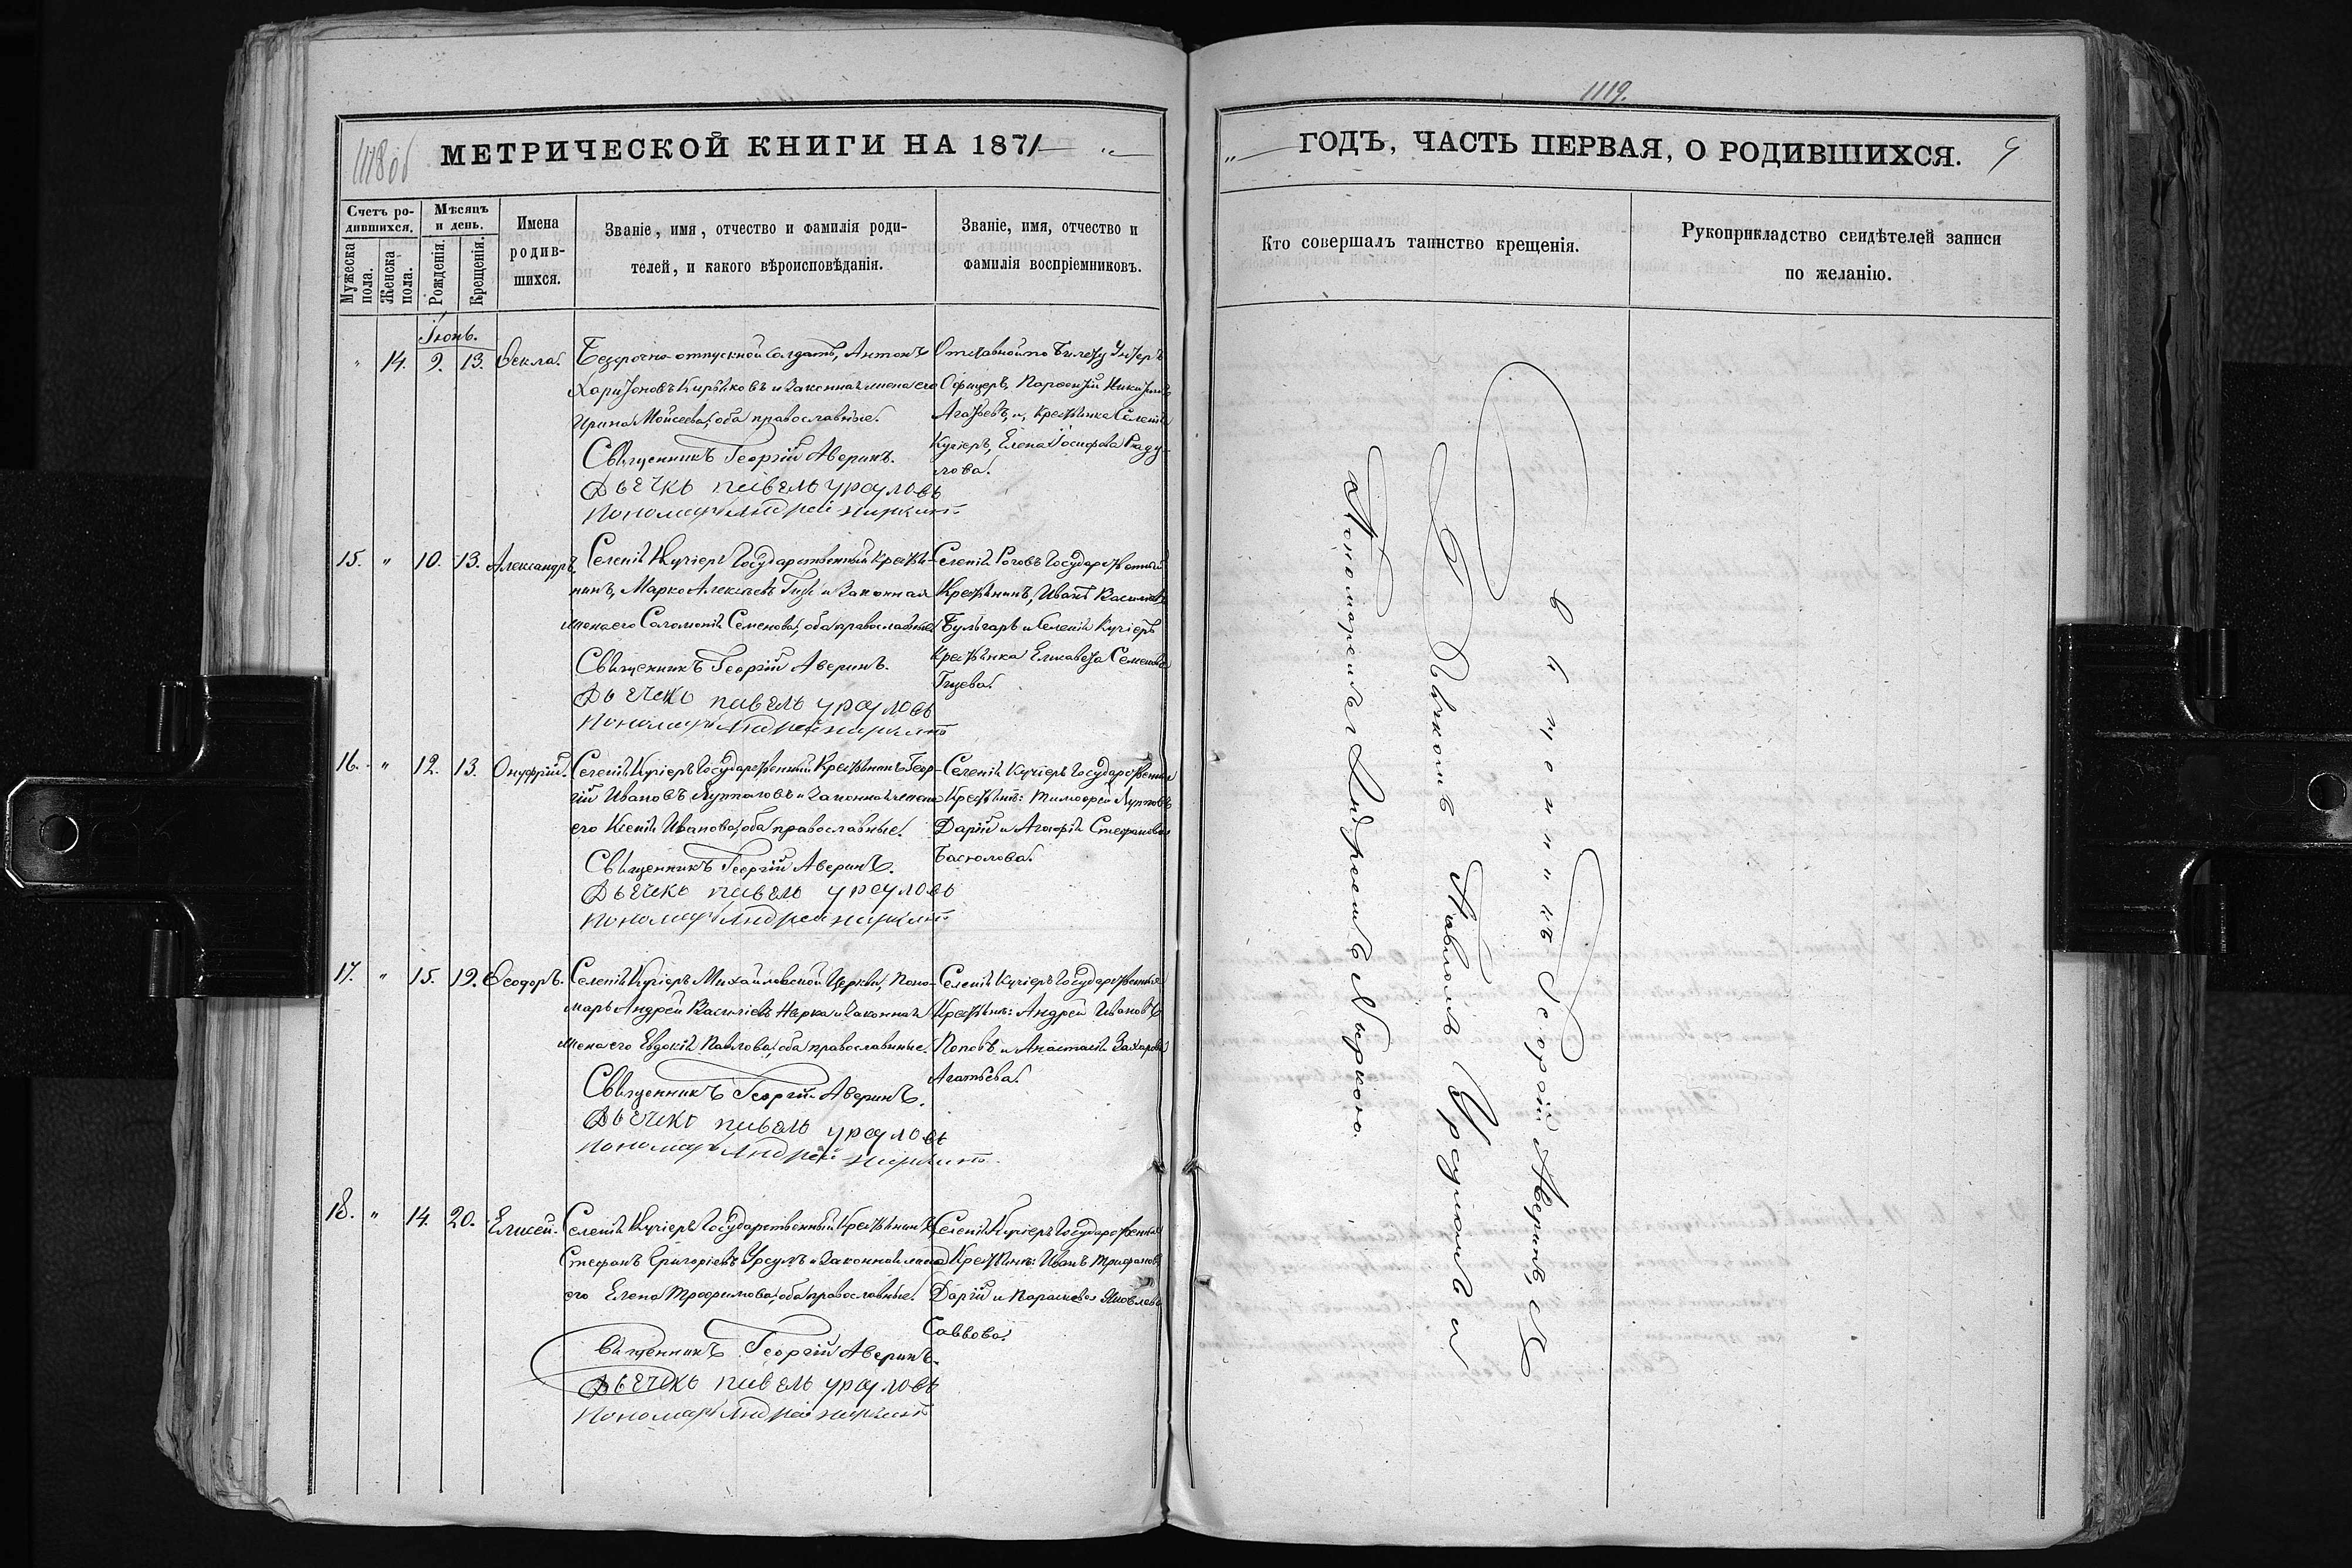 1118 об
МЕТРИЧЕСКОЙ КНИГИ НА 1871
Счетъ ро-
дившихся.
Мужеска
пола.
Женска
пола.
Мѣсяцъ
и день.
Рожденія.
Крещенія.
Имена
родив-
шихся.
Званіе, имя, отчество и фамилія роди-
телей, и какого вѣроисповѣданія.
Званіе, имя, отчество и
фамилія воспріемниковъ.
Іюнь.
" 14. 9. 13. Ѳекла.
Безсрочно-отпускной Солдатъ, Антонъ
Харитоновъ Кирѣковъ и Законная жена его
Ирина Моисеева, оба православные.
Священникъ Георгій Аверинъ.
Дьячекъ Павелъ Урсуловъ
Пономарь Андрей
Отставной по Билету Унтеръ
Офицеръ, Парѳеній
Агатьевъ, и, крестьянка Селенія
Кугіеръ, Елена Іосифова Раду-
лова.
15. " 10. 13. Александръ
Селенія Кугіеръ Государственный крестья-
нинъ, Марко Алексѣевъ и Законная
жена его Саломонія Семенова, оба православные
Священникъ Георгій Аверинъ.
Дьячекъ Павелъ Урсуловъ
Пономарь Андрей
Селенія Государственный
Крестьянинъ, Иванъ Василіевъ
Бульгаръ и Селенія Кугіеръ
Крестьянка Елисавета Семенова
16. " 12. 13. Онуфрій.
Селенія Кугіеръ Государственный Крестьянинъ Геор-
гій Ивановъ и Законная жена
его Ксенія Иванова, оба православные.
Священникъ Георгій Аверинъ.
Дьячекъ Павелъ Урсуловъ
Пономарь Андрей
Селенія Кугіеръ Государственные
Крестьяне: Тимоѳей
Дарій и Агафія Стефанова
17. " 15. 19. Ѳеодоръ.
Селенія Кугіеръ Михайловской Церкви, Поно-
марь Андрей Василіевъ Нярка и Законная
жена его Евдокія Павлова, оба православные.
Священникъ Георгій Аверинъ.
Дьячекъ Павелъ Урсуловъ
Пономарь Андрей
Селенія Кугіеръ Государственные
Крестьяне: Андрей Ивановъ
Поповъ и Анастасія Захарова
Агатьева.
18. " 14. 20. Елисей.
Селенія Кугіеръ Государственный Крестьянинъ
Стефанъ Григоріевъ Урсулъ и Законная жена
его Елена Трофимова, оба православные.
Священникъ Георгій Аверинъ.
Дьячекъ Павелъ Урсуловъ
Пономарь Андрей
Селенія Кугіеръ Государственные
Крестьяне: Иванъ Трифановъ
Дарій и Параскева Яковлева
Саввова.
1119.
ГОДЪ, ЧАСТЬ ПЕРВАЯ, О РОДИВШИХСЯ. 9
Кто совершалъ таинство крещенія.
Рукоприкладство свидѣтелей записи
по желанію.
Священникъ Георгій Аверинъ, съ
Дьячкомъ Павломъ Урсуломъ и
Пономаремъ Андреемъ Няркою.